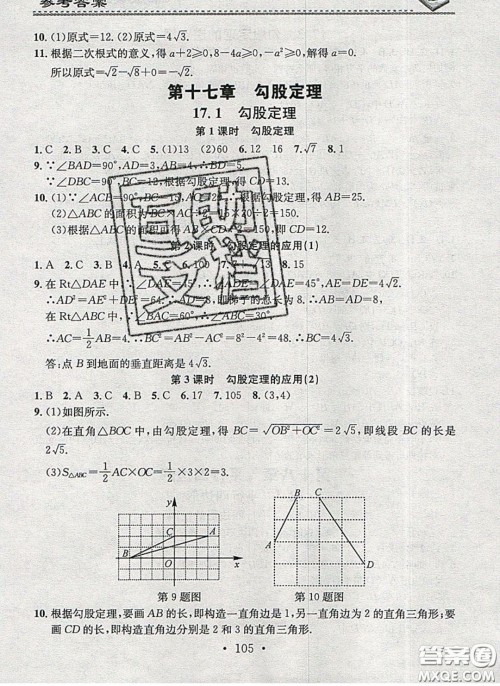 参考答案
10. (1)原式=12. (2)原式=4√3.
11. 根据二次根式的意义,得a+2≥0,8-4a≥0,-a²≥0,解得a=0.
所以原式=√2-√8+0=-√2.
第十七章 勾股定理
17.1 勾股定理
第1课时 勾股定理
1. C 2. B 3. C 4. C 5. (1)13 (2)60 6. 12 16 7. √7 8. 1
9. ∵∠BAD=90°,AD=3,AB=4,∴BD=5.
∵∠DBC=90°,BC=12,根据勾股定理,得CD=13.
10. (1)∵∠ACB=90°,BC=15, 根据勾股定理,得AB=25.
(2)△ABC的面积为BC×AC÷2=15×20÷2=150.
(3)根据△ABC的面积可得AB×CD÷2=150,即CD=12.
第2课时 勾股定理的应用(1)
1. A 2. B 3. B 4. A 5. 6. 100 7. 13 8. 15
9. 在Rt△DAE中,∵∠DAE=45°,∴∠ADE=∠DAE=45°,AE=DE=4√2.
∴AD²=AE²+DE²=64.∴AD=8,即梯子的总长为8.∴AB=AD=8,
在Rt△ABC中,∵∠BAC=60°,∴∠ABC=30°.
∴AC=1/2AB=4.∴BC²=AB²-AC²=8²-4²=48.∴BC=4√3.
答:点B到地面的垂直距离是4√3.
第3课时 勾股定理的应用(2)
1. B 2. A 3. C 4. A 5. C 6. 17 7. 105 8. (3,4)
9. (1)如图所示.
(2)在直角△BOC中,由勾股定理,得BC=√OB²+OC²=2√5,即线段BC的长是
2√5.
(3)S△ABC=1/2AC×OC=1/2×3×2=3.
y
C
A
B
O
x
B
C
A
D
第9题图
第10题图
10. 根据勾股定理,要画AB的长,即构造一直角边是1,另一直角边为2的直角三角形;要
画CD的长,即构造直角边分别是2和3的直角三角形.
· 105 ·
答案圈
MXQE.COM